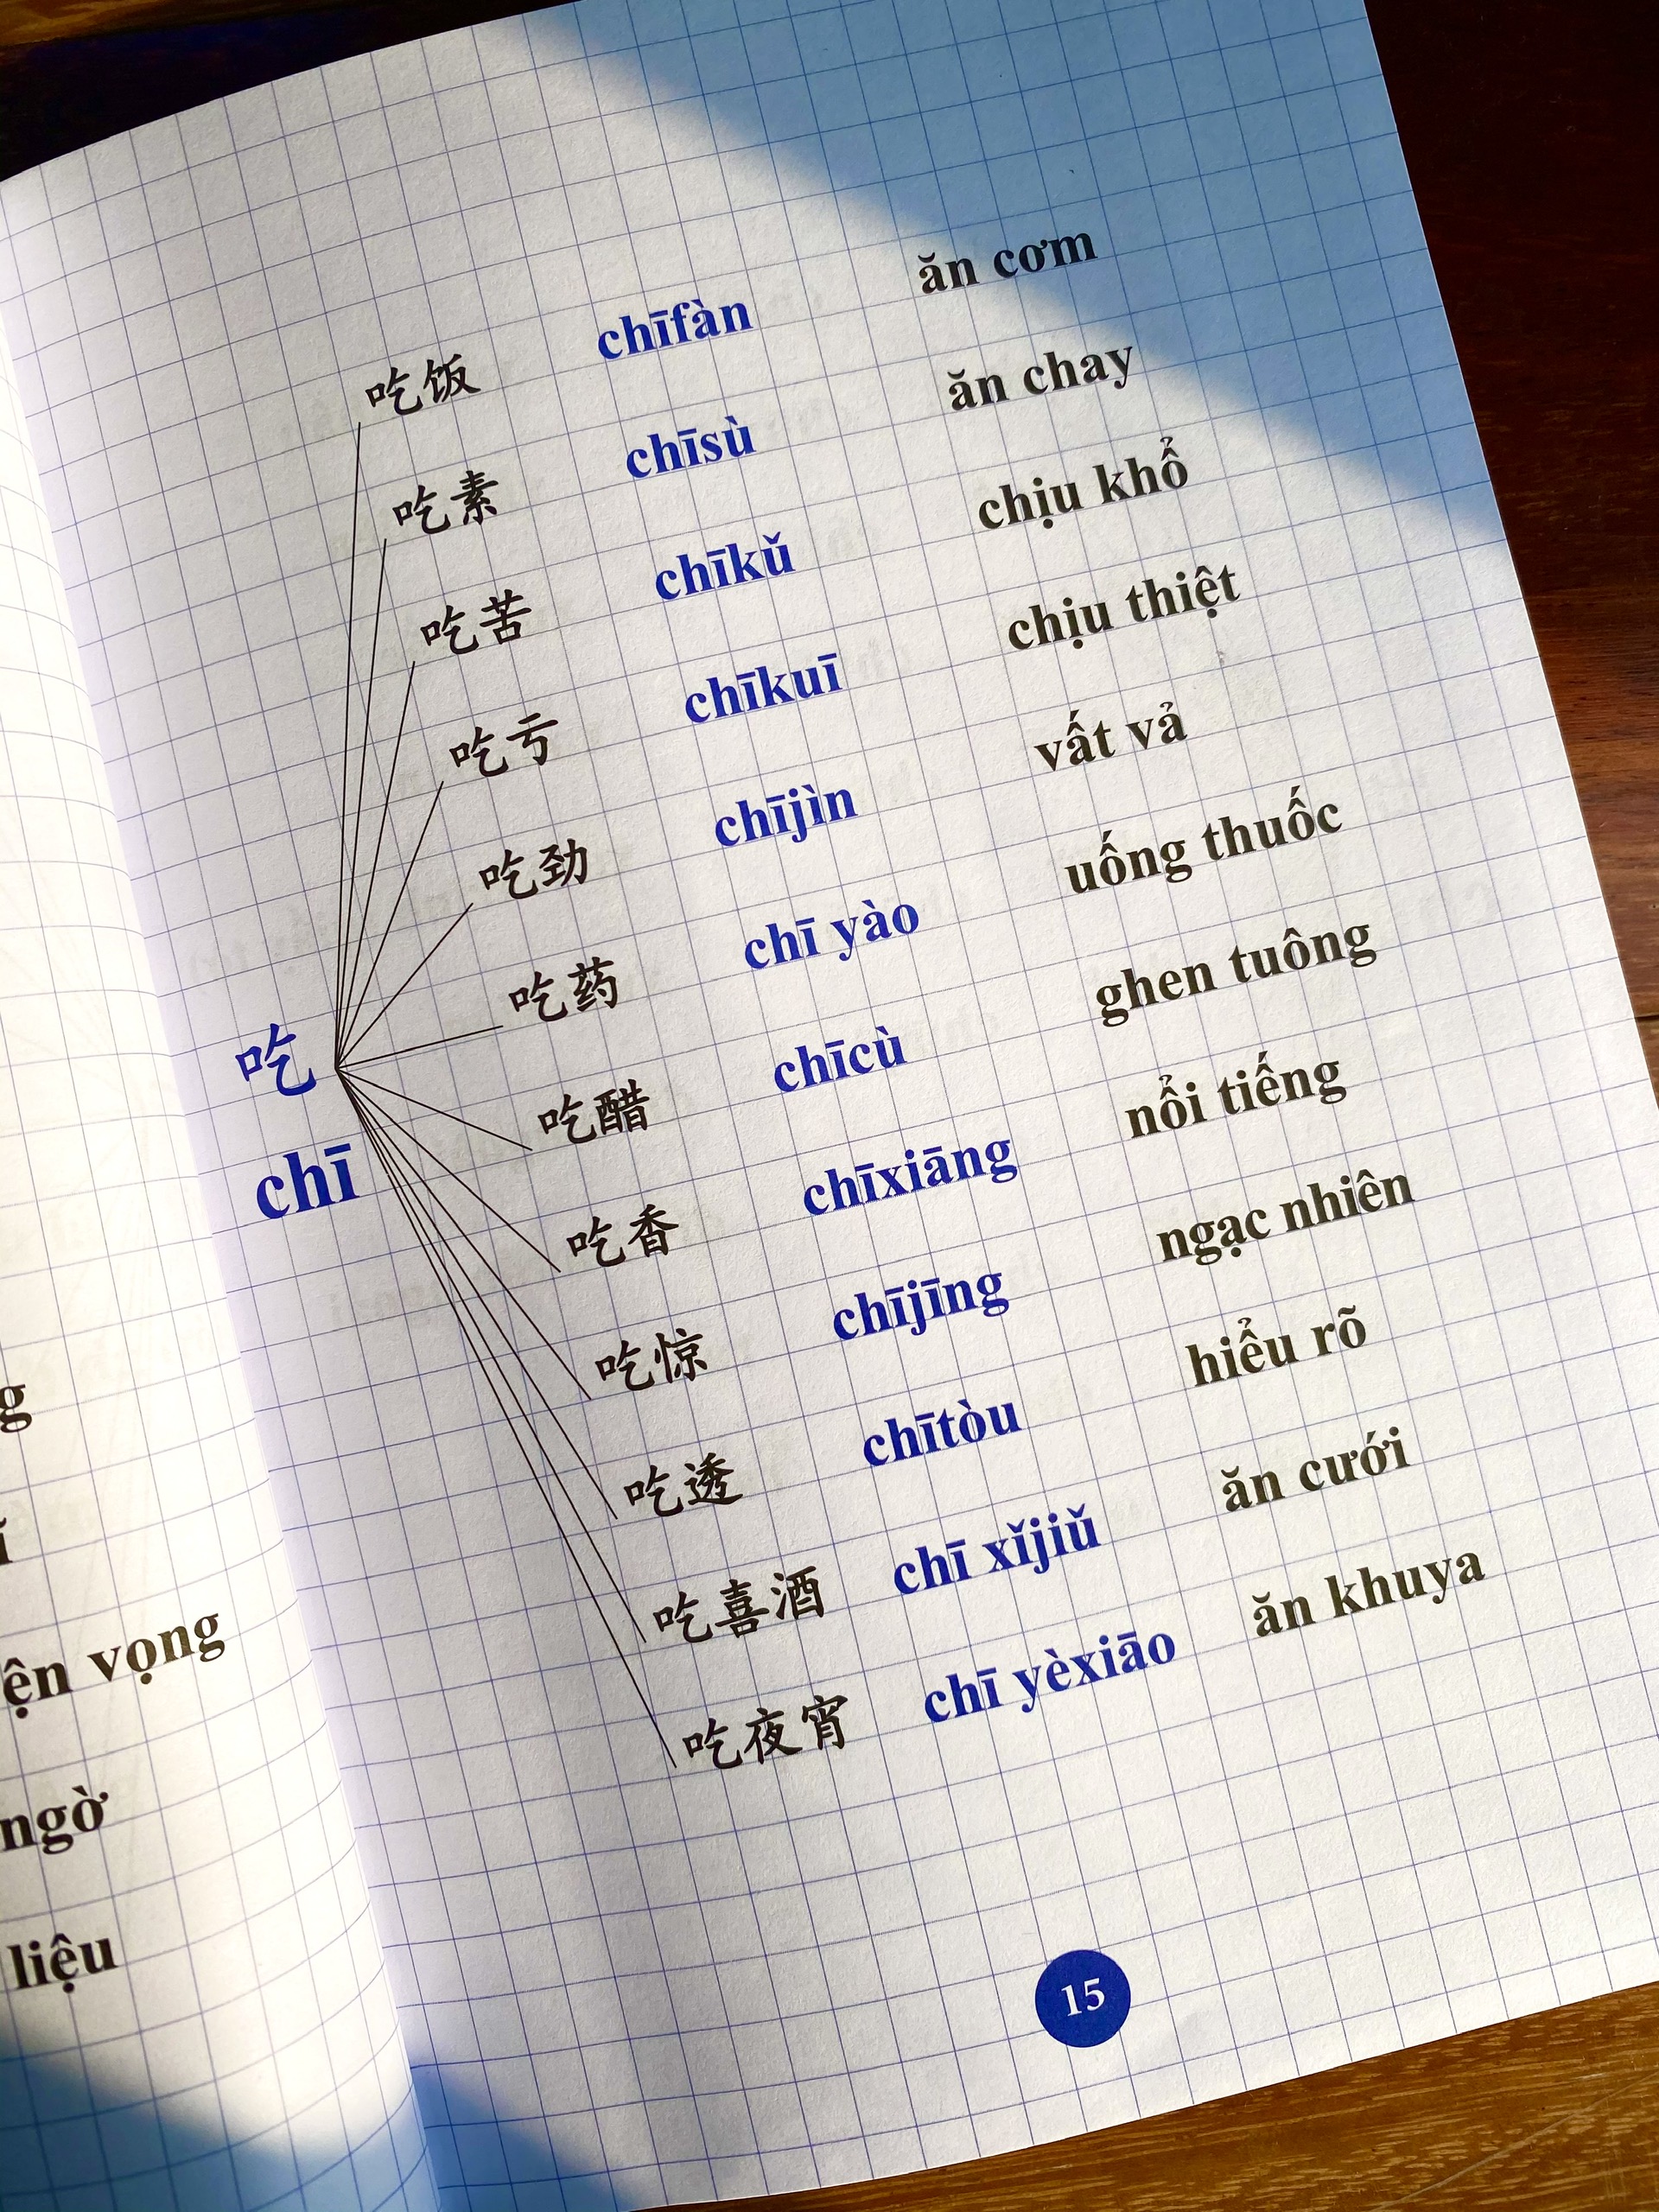 吃饭 chīfàn ăn cơm
吃素 chīsù ăn chay
吃苦 chīkǔ chịu khổ
吃亏 chīkuī chịu thiệt
吃劲 chījìn vất vả
吃药 chī yào uống thuốc
吃
chī
吃醋 chīcù ghen tuông
吃香 chīxiāng nổi tiếng
吃惊 chījīng ngạc nhiên
吃透 chītòu hiểu rõ
吃喜酒 chī xǐjiǔ ăn cưới
吃夜宵 chī yèxiāo ăn khuya
15
vọng
ngờ
liệu